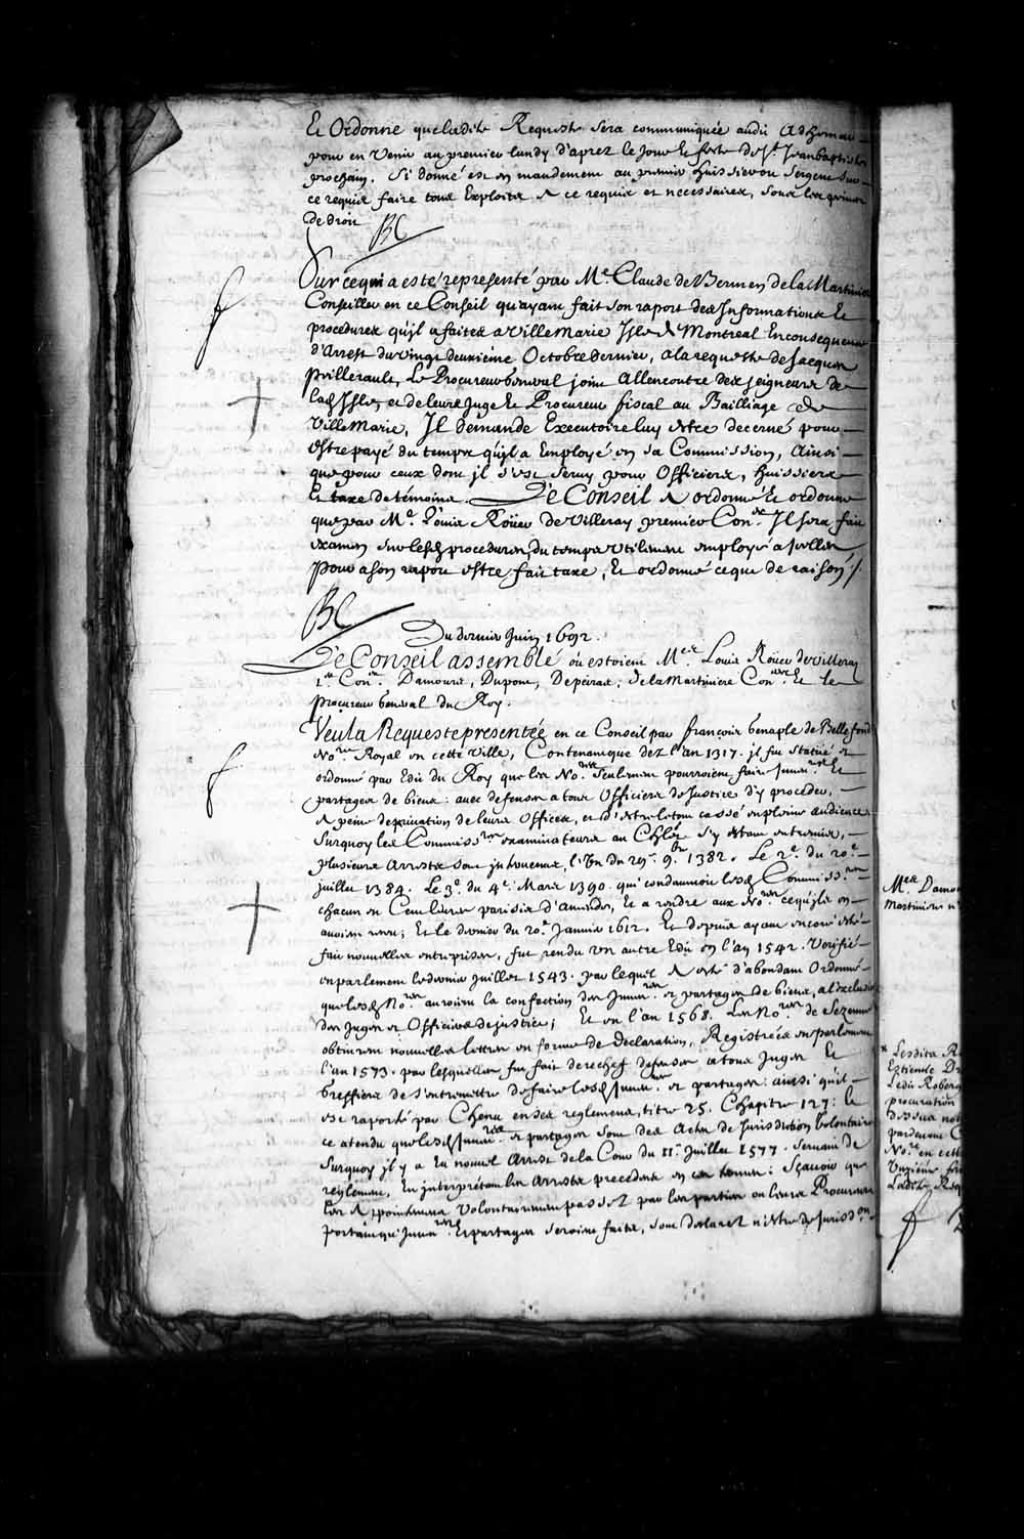 Et Ordonne que ladite Requeste sera communiquée audit Adhemar
pour en Venir au premier lundy d'aprez le Jour et feste de St Jean baptiste
prochain. Si donné est en mandement au premier huissier ou Sergent sur
ce requis faire tous Exploits A ce requis et necessaires, sous les peines
de droit
BC
Sur ce qui a esté representé par Me. Claude de Bermen de la Martiniere
Conseiller en ce Conseil qu'ayant fait son raport des Informations Et
procedures qu'il a faites a Ville Marie Isle de Montreal En consequence
d'Arrest du vingt deuxieme Octobre dernier, a la requeste de Jacques
Le Procureur General joint Allencontre des seigneurs de
lad Isle, et de leurs Juge Et Procureur fiscal au Bailliage de
Ville Marie, Il demande Executoire luy estre decerné pour
estre payé du temps qu'il a Employé en sa Commission, Ainsi
que pour ceux dont il s'est servy pour Officiers, huissiers
Et taxe de témoins. Le Conseil A ordonné Et ordonne
que par Me. Louis Roüer de Villeray premier Coner. Il sera fait
examen sur lesd procedures, du temps Utilement employé a Icelles
Pour a son raport estre fait taxe, Et ordonné ce que de raison /.
BC
Du dernier Juin 1692.
Le Conseil assemblé ou estoient Mes. Louis Roüer de Villeray
1er. Coner. Damours, Dupont, Depeiras, de la Martiniere Coners. Et le
Procureur General du Roy.
Veu la Requeste presentée en ce Conseil par françois Genaple de Bellefond
Nore. Royal en cette Ville, Contenant que dez l'an 1317. jl fut Statué et
ordonné par Edit du Roy que les Nores. Seulement pourroient faire Inven.res Et
partages de biens: avec defenses a tous Officiers de Justice d'y proceder,
A peine de privation de leurs Offices, et d'estre le tout cassé en pleine audience
Surquoy les Commissres. examinateurs au Chlet s'y estant entremis,
Plusieurs Arrests sont jntervenus, l'Un du 9bre 1382. Le 2e. du 20e.
juillet 1384. Le 3e. du 4e. Mars 1390. qui condamnoit lesd Commissres.
chacun en Cent livres parisis d'Amende, Et a rendre aux Nores. ce qu'ils en
avoient receu; Et le dernier du 20e. Janvier 1612. Et depuis ayant encore esté
fait nouvelles entreprises, fut rendu Un autre Edit en l'an 1542. Verifié
en parlement le dernier Juillet 1543. par lequel A esté d'abondant Ordonné
que lesd Nores. auroient la confection des Inven.res et partages de biens, a l'exclusion
des Juges et Officiers de justice; Et en l'an 1568. Les Nores. de Sezanne
obtinrent nouvelles lettres en forme de declaration, Registrées en parlement
l'an 1573. par lesquelles fut fait derechef defenses a tous Juges Et
Greffiers de s'entremettre de faire lesd Inven.res et partages: ainsi qu'il
est raporté par Chenu en ses reglemens, titre 25. Chapitre 127: Et
ce atendu que lesd Inven.res et partages sont des Actes de Jurisdiction Volontaire
Surquoy jl y a Eu nouvel Arrest de la Cour du 11e Juillet 1577. servant de
reglement, En interprétant les Arrests precedens en ces termes: Sçavoir que
les Apointemens Volontairement passez par les parties ou leurs Procureurs
portant qu'Inven.res Et partages seroient faits, sont declarez n'estre de Jurisdon.
Mes. Damo
Martiniere
Lesdits R
Estiende D
Ledit Rober
procuration
dessus not
pardevant
Nore en cette
Ladite Req